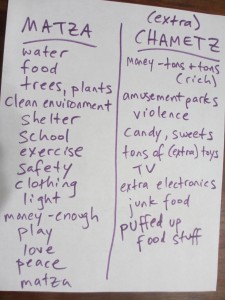 MATZA
water
food
trees, plants
clean environment
shelter
school
exercise
safety
clothing
light
money-enough
play
love
peace
matza
(extra)
CHAMETZ
money-tons + tons
(rich)
amusement parks
violence
candy, sweets
tons of (extra) toys
TV
extra electronics
junk food
puffed up
food stuff